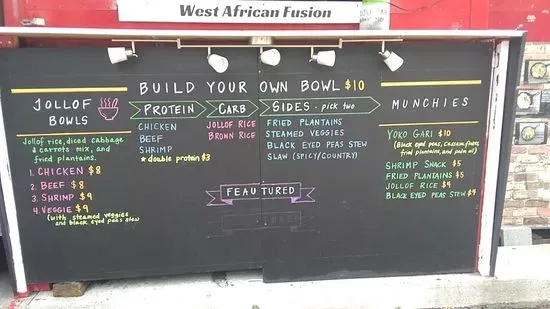 West African Fusion
BUILD YOUR OWN BOWL $10
JOLLOF
BOWLS
Jollof rice, diced cabbage
& carrots mix, and
fried plantains.
1. CHICKEN $8
2. BEEF $8
3. SHRIMP $9
4. VEGGIE $9
(with steamed veggies
and black eyed peas stew)
PROTEIN
CHICKEN
BEEF
SHRIMP
* double protein $3
CARB
JOLLOF RICE
BROWN RICE
SIDES - pick two
FRIED PLANTAINS
STEAMED VEGGIES
BLACK EYED PEAS STEW
SLAW (SPICY/COUNTRY)
FEATURED
MUNCHIES
YOKO GARI $10
(Black eyed peas, cassava flakes,
fried plantains, and palm oil)
SHRIMP SNACK $5
FRIED PLANTAINS $5
JOLLOF RICE $4
BLACK EYED PEAS STEW